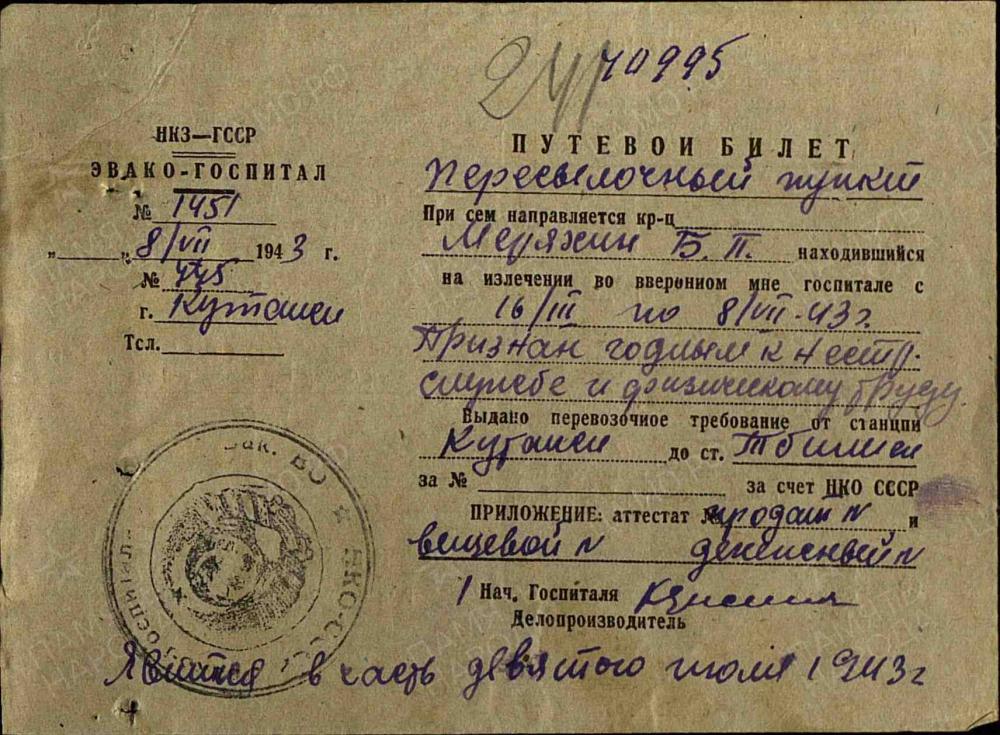 70995
НКЗ—ГССР
ЭВАКО-ГОСПИТАЛ
№ 1451
„ „ 8/VII 1943 г.
№ 445
г. Кутаиси
Тсл.
ПУТЕВОЙ БИЛЕТ
Пересылочный пункт
При сем направляется кр-ц
Меряхин Б. П. находившийся
на излечении во вверенном мне госпитале с
16/III по 8/VII-43 г.
Признан годным к нестр.
службе и физическому труду
Выдано перевозочное требование от станции
Кутаиси до ст. Тбилиси
за № за счет НКО СССР
ПРИЛОЖЕНИЕ: аттестат № продат N и
вещевой N денежный N
Нач. Госпиталя
Делопроизводитель
Явится в часть девятого июля 1943 г